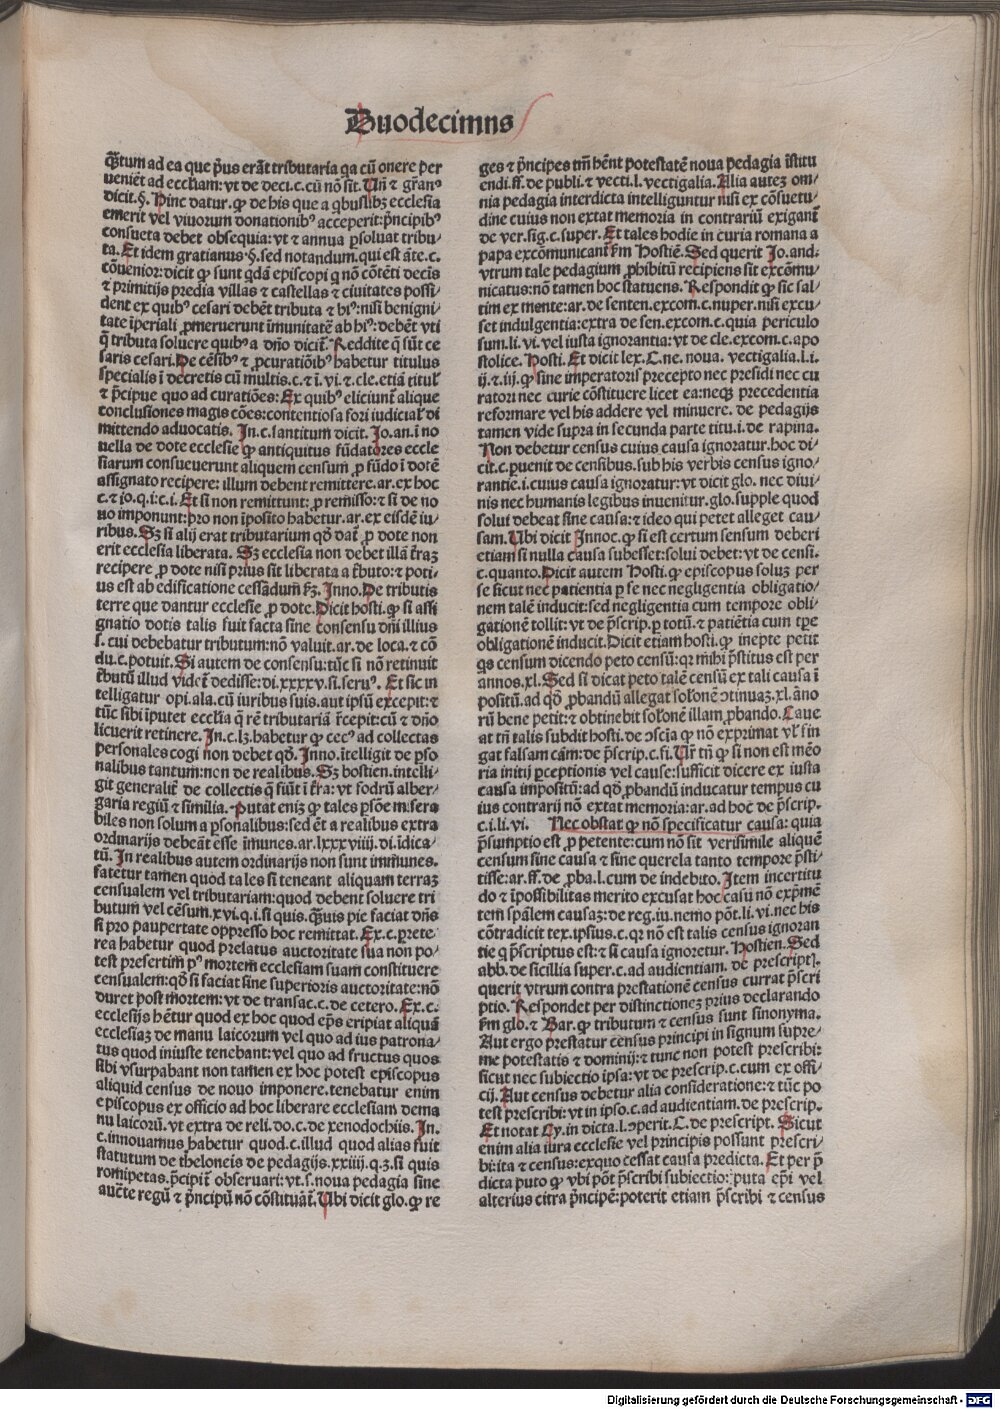 Duodecimus
q̄tum ad ea que p̄us erāt tributaria qa cū onere per
ueniēt ad eccl̄iam: vt de deci.c.cū nō sit. Un̄ ⁊ gr̄anꝰ
dicit.§. Hinc datur. ꝙ de his que a qbuslibꝫ ecclesia
emerit vel viuorum donationibꝰ acceperit: p̄ncipibꝰ
consueta debet obsequia: vt ⁊ annua p̱soluat tribu-
ta. Et idem gratianus.§. sed notandum. qui est āte.c.
cōuenior: dicit ꝙ sunt qdā episcopi q nō cōtēti decīs
⁊ primitijs predia villas ⁊ castellas ⁊ ciuitates possi-
dent ex quibꝰ cesari debēt tributa ⁊ hiꝰ: nisi benigni-
tate īperiali ꝓmeruerunt īmunitatē ab hiꝰ: debēt vti
q̄ tributa soluere quibꝰ a dn̄o dicit̄. Reddite q̄ sūt ce
saris cesari. De cēsibꝰ ⁊ ꝓcurationibꝰ habetur titulus
specialis ī decretis cū multis.c.⁊ ī. vi. ⁊ cle. etiā titulꝰ
⁊ p̄cipue quo ad curatiōes: Ex quibꝰ eliciunt̄ alique
conclusiones magis cōes: contentiosa fori iudicialꝰ di
mittendo aduocatis. In.c. santitum dicit. Jo. an. ī no
uella de dote ecclesie ꝙ antiquitus fūdatores eccle
siarum consueuerunt aliquem censum ꝓ fūdo ī dotē
assignato recipere: illum debent remittere. ar. ex hoc
c. ⁊ io. q. i: c. i. Et si non remittunt: ꝓ remisso: ⁊ si de no
uo imponunt: ꝓro non īposito habetur. ar. ex eisdē iu-
ribus. Sꝫ si alij erat tributarium qd̄ dat̄ ꝓ dote non
erit ecclesia liberata. Sꝫ ecclesia non debet illā t̄raꝫ
recipere ꝓ dote nisi prius sit liberata a t̄buto: ⁊ poti-
us est ab edificatione cessādum fꝫ. Inno. De tributis
terre que dantur ecclesie ꝓ dote. Dicit hosti. ꝙ si assi
gnatio dotis talis fuit facta sine consensu dn̄i illius
s. cui debebatur tributum: nō valuit. ar. de loca. ⁊ cō
du. c. potuit. Si autem de consensu: tūc si nō retinuit
t̄butū illud videt̄ dedisse: di. xxxxv. si. seruꝰ. Et sic in
telligatur opi. ala. cū iuribus suis. aut ipsū excepit: ⁊
tūc sibi īputet eccl̄ia q̄ rē tributariā r̄cepit: cū ⁊ dn̄o
licuerit retinere. In. c. lꝫ. habetur ꝙ ccc̄ꝰ ad collectas
personales cogi non debet qd̄. Inno. ītelligit de p̱so
nalibus tantum: non de realibus. Sꝫ hostien. intelli-
git generalit̄ de collectis q̄ fiūt ī t̄ra: vt fodrū alber-
garia regiū ⁊ similia. Putat enīꝫ ꝙ tales p̱sōe m: sera
biles non solum a p̱sonalibus: sed ēt a realibus extra
ordinarijs debeāt esse īmunes. ar. lxxxviiij. di. īdica-
tū. In realibus autem ordinarijs non sunt immunes.
fatetur tamen quod tales si teneant aliquam terraꝫ
censualem vel tributariam: quod debent soluere tri
butum vel cēsum. xvi. q. i. si quis. q̄uis pie faciat dn̄s
si pro paupertate oppresso hoc remittat. Ex. c. p̱rete
rea habetur quod prelatus auctoritate sua non po-
test presertim pꝰ mortem ecclesiam suam constituere
censualem: qd̄ si faciat sine superioris auctoritate: nō
duret post mortem: vt de transac. c. de cetero. Ex. c.
ecclesijs hētur quod ex hoc quod ep̄s eripiat aliquā
ecclesiaꝫ de manu laicorum vel quo ad ius patrona-
tus quod iniuste tenebant: vel quo ad fructus quos
sibi vsurpabant non tamen ex hoc potest episcopus
aliquid census de nouo imponere. tenebatur enim
episcopus ex officio ad hoc liberare ecclesiam de ma
nu laicorū. vt extra de reli. do. c. de xenodochiis. In.
c. innouamus habetur quod. c. illud quod alias fuit
statutum de theloneis de pedagijs. xxiiij. q. 3. si quis
romipetas. p̄cipit̄ obseruari: vt. s. noua pedagia sine
auct̄e regū ⁊ p̄ncipū nō cōstituāt̄. Ubi dicit glo. ꝙ re
ges ⁊ p̄ncipes tm̄ hēnt potestatē noua pedagia īstitu
endi. ff. de publi. ⁊ vecti. l. vectigalia. Alia auteꝫ om-
nia pedagia interdicta intelliguntur nisi ex cōsuetu-
dine cuius non extat memoria in contrariū exigant̄
de ver. sig. c. super. Et tales hodie in curia romana a
papa excōmunicant̄ fm̄ Hostiē. Sed querit Jo. and:
vtrum tale pedagium ꝓhibitū recipiens sit excōmu-
nicatus: nō tamen hoc statuens. Respondit ꝙ sic sal-
tim ex mente: ar. de senten. excom. c. nuper. nisi excu-
set indulgentia: extra de sen. excom. c. quia periculo
sum. li. vi. vel iusta ignorantia: vt de cle. excom. c. apo
stolice. Hosti. Et dicit lex. C. ne. noua. vectigalia. l. i.
ij. ⁊. iij. ꝙ sine imperatoris precepto nec presidi nec cu
ratori nec curie cōstituere licet ea: neqꝫ precedentia
reformare vel his addere vel minuere. de pedagijs
tamen vide supra in secunda parte titu. i. de rapina.
Non debetur census cuius causa ignoratur. hoc di-
cit. c. p̱uenit de censibus. sub his verbis census igno-
rantie. i. cuius causa ignoratur: vt dicit glo. nec diui-
nis nec humanis legibus inuenitur. glo. supple quod
solui debeat sine causa: ⁊ ideo qui petet alleget cau-
sam. Ubi dicit Innoc. ꝙ si est certum sensum deberi
etiam si nulla causa subesset: solui debet: vt de censi.
c. quanto. Dicit autem Hosti. ꝙ episcopus soluꝫ per
se sicut nec patientia p̱ se nec negligentia obligatio-
nem talē inducit: sed negligentia cum tempore obli-
gationē tollit: vt de p̄scrip. p̱ totū. ⁊ patiētia cum tp̄e
obligationē inducit. Dicit etiam hosti. ꝙ inepte petit
qs censum dicendo peto censū: qꝛ mihi p̄stitus est per
annos. xl. Sed si dicat peto talē censū ex tali causa ī
positū. ad qd̄ ꝓbandū allegat solonē ɔtinuaꝫ. xl. āno
rū bene petit: ⁊ obtinebit solonē illam ꝓbando. Caue
at tn̄ talis subdit hosti. de ɔsciā ꝙ nō exprimat vl̄ fin
gat falsam cām: de p̄scrip. c. fi. Ur̄ tn̄ ꝙ si non est mēo
ria initij p̱ceptionis vel cause: sufficit dicere ex iusta
causa impositū: ad qd̄ ꝓbandū inducatur tempus cu
ius contrarij nō extat memoria: ar. ad hoc de p̄scrip.
c. i. li. vi. Nec obstat ꝙ nō specificatur causa: quia
p̄sumptio est ꝓ petente: cum nō sit verisimile aliquē
censum sine causa ⁊ sine querela tanto tempore p̄sti-
tisse: ar. ff. de ꝓba. l. cum de indebito. Item incertitu
do ⁊ īpossibilitas merito excusat hoc casu nō exp̄mē
tem spālem causaꝫ: de reg. iu. nemo pōt. li. vi. nec his
cōtradicit tex. ipsiꝰus. c. qꝛ nō est talis census ignoran
tie q p̄scriptus est: ⁊ si causa ignoretur. Hostien. Sed
abb. de sicillia super. c. ad audientiam. de prescript.
querit vtrum contra prestationē census currat p̄scri
ptio. Respondet per distinctioneꝫ prius declarando
fm̄ glo. ⁊ Bar. ꝙ tributum ⁊ census sunt sinonyma.
Aut ergo prestatur census principi in signum supre-
me potestatis ⁊ dominij: ⁊ tunc non potest prescribi:
sicut nec subiectio ipsa: vt de prescrip. c. cum ex offi-
cij. Aut census debetur alia consideratione: ⁊ tūc po
test prescribi: vt in ipso. c. ad audientiam. de prescrip.
Et notat Cy. in dicta. l. ɔperit. C. de prescript. Sicut
enim alia iura ecclesie vel principis possunt prescri-
bi: ita ⁊ census: exquo cessat causa predicta. Et per p̄
dicta puto ꝙ vbi pōt p̄scribi subiectio: puta ep̄i vel
alterius citra p̄ncipē: poterit etiam p̄scribi ⁊ census
Digitalisierung gefördert durch die Deutsche Forschungsgemeinschaft - DFG